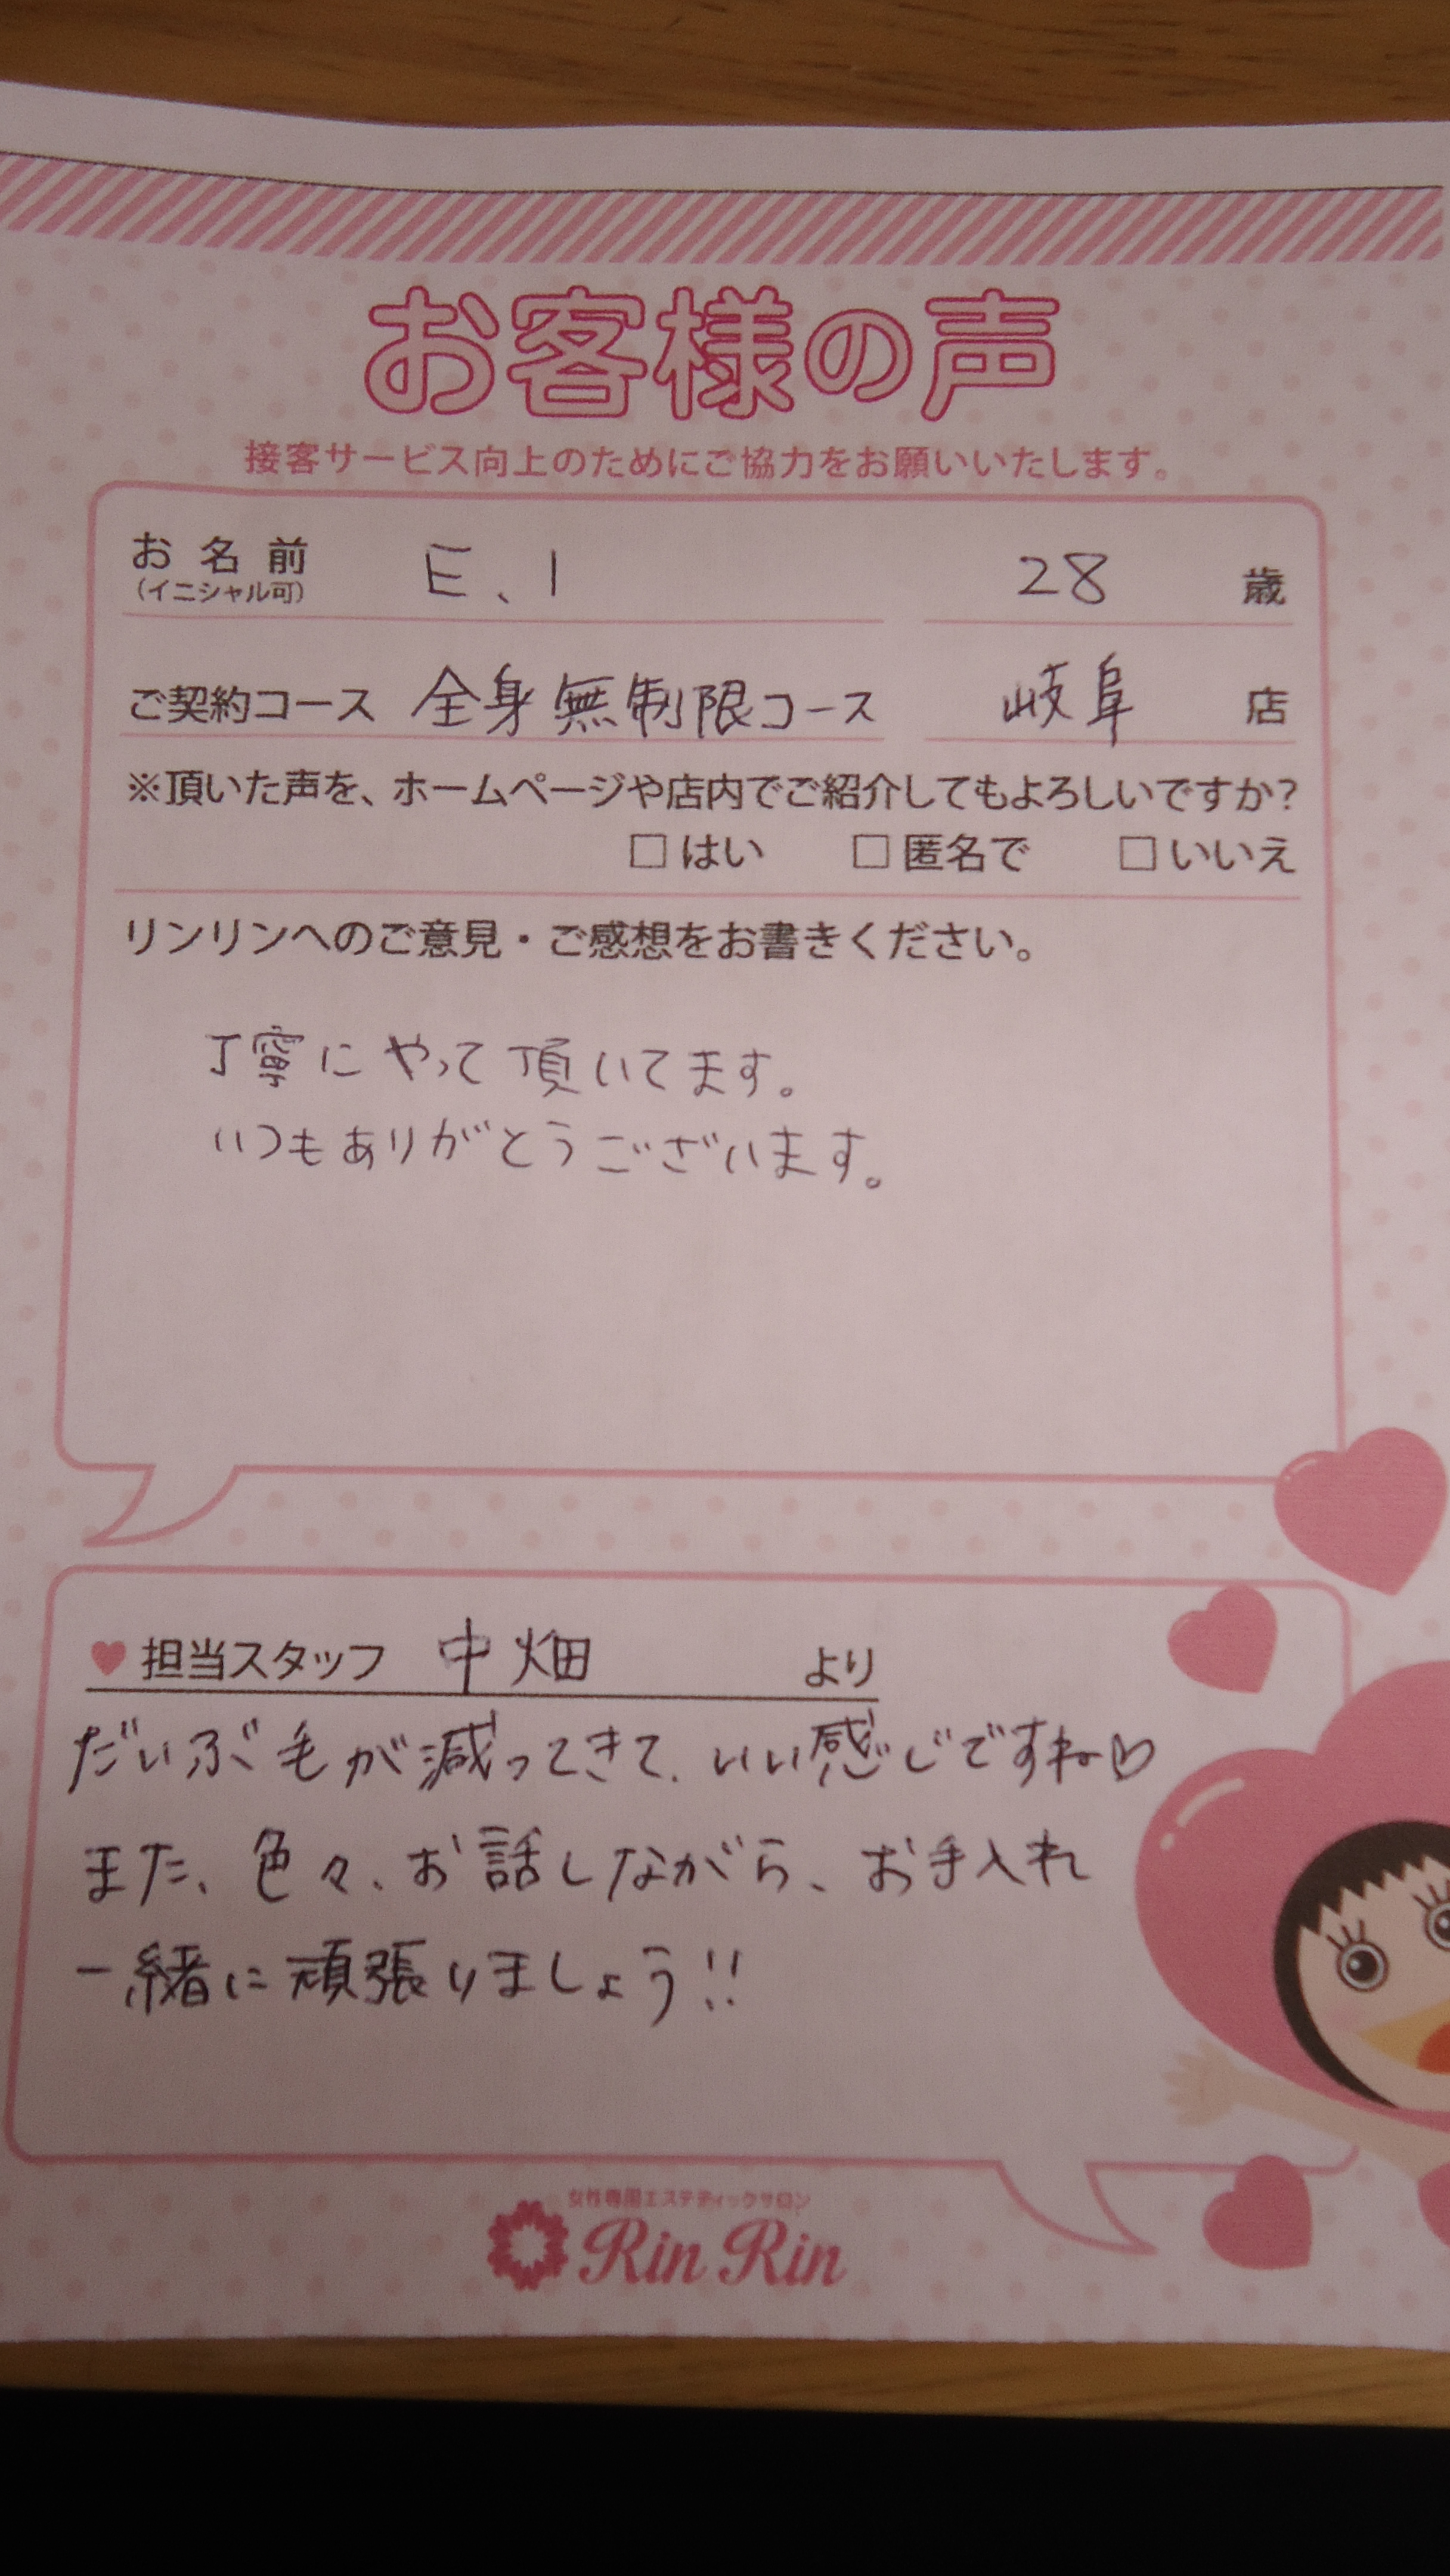 お客様の声
接客サービス向上のためにご協力をお願いいたします。
お名前 E、I 28 歳
(イニシャル可)
ご契約コース 全身無制限コース 岐阜 店
※頂いた声を、ホームページや店内でご紹介してもよろしいですか?
□はい □匿名で □いいえ
リンリンへのご意見・ご感想をお書きください。
丁寧にやって頂いてます。
いつもありがとうございます。
♥担当スタッフ 中畑 より
だいぶ毛が減ってきて、いい感じですね♡
また、色々、お話しながら、お手入れ
一緒に頑張りましょう!!
女性専用エステティックサロン
Rin Rin